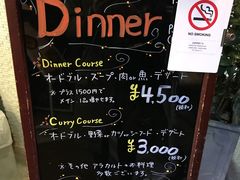 Dinner
NO SMOKING
Dinner Course
オードブル・スープ・肉or魚・デザート
※プラス1500円で
メイン1品増やせます。
¥4,500
(税別)
Curry Course
オードブル・野菜orカツorシーフード・デザート
¥3,000
(税別)
※その他 アラカルト・お料理
多数ございます。